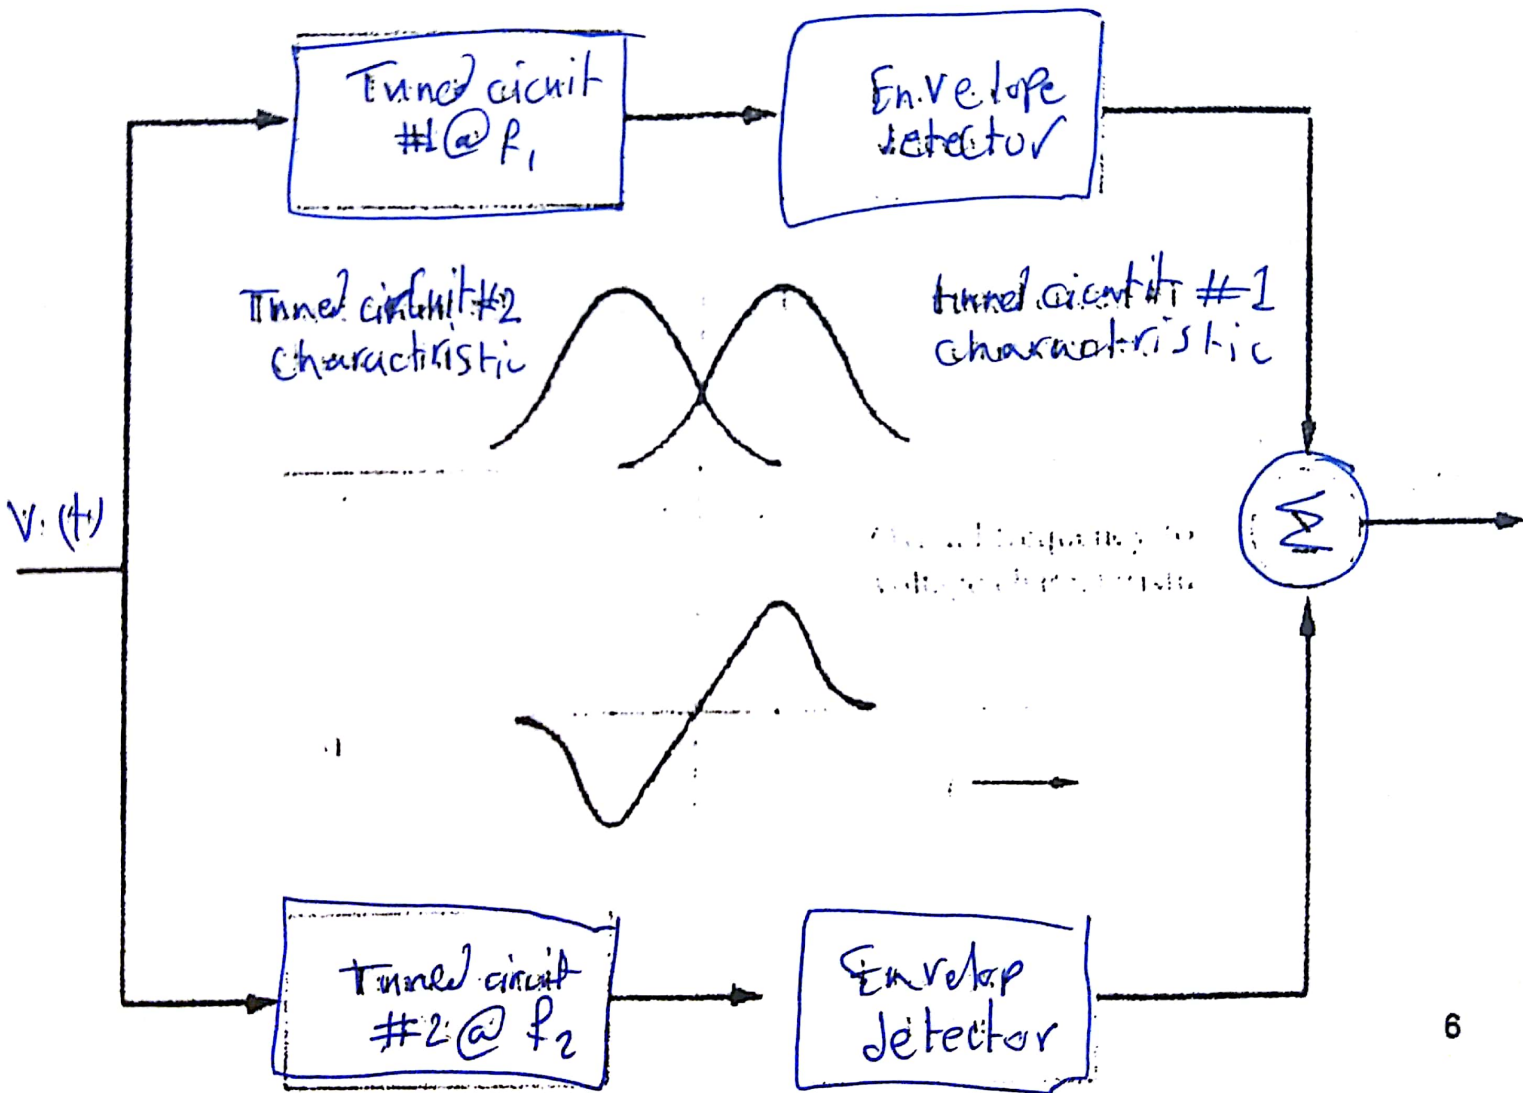 Tuned cicuit
#1 @ f₁
Envelope
detector
Tuned circuit #2
charactiristic
tuned cicutit #1
charactristic
V. (t)
Σ
voltage
Tuned circuit
#2 @ f₂
Envelop
detector
6